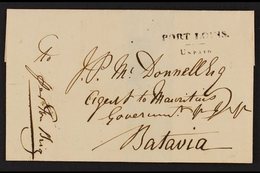 PORT LOUIS.
UNPAID
J. P. McDonnell Esq
Agent to Mauritius
Government
Batavia